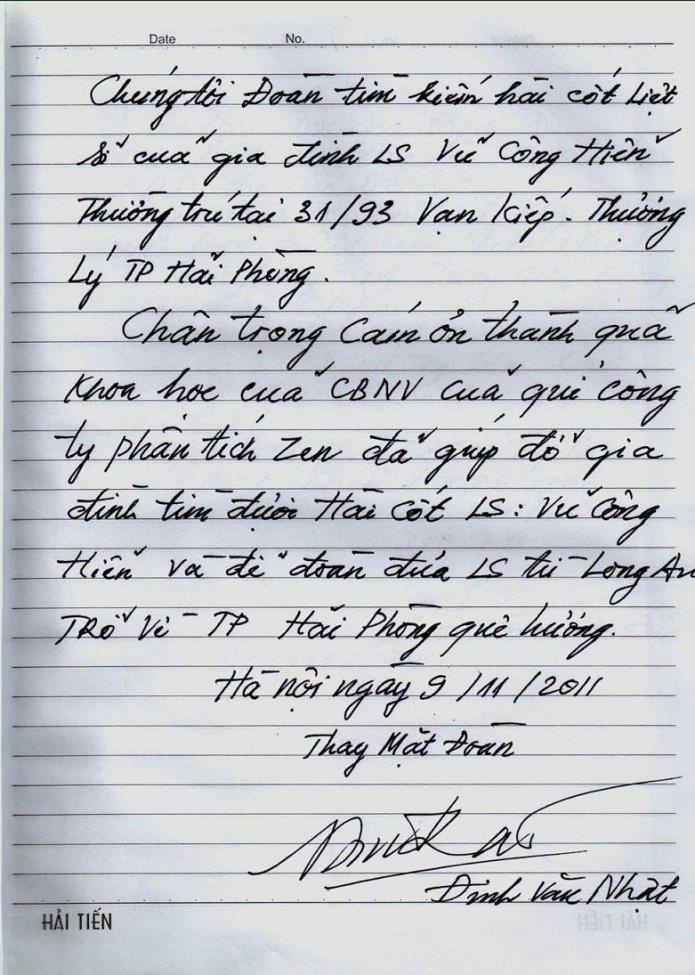 Date No.
Chúng tôi Đoàn tìm kiếm hài cốt Liệt
sĩ của gia đình LS Vũ Công Hiển
Thường trú tại 31/93 Vạn Kiếp. Thượng
Lý TP Hải Phòng.
Chân trọng Cám ơn thành quả
khoa học của CBNV của quí công
ty phân tích Zen đã giúp đỡ gia
đình tìm được Hài cốt LS: Vũ Công
Hiển và để đoàn đưa LS từ Long An
TRở Về TP Hải Phòng quê hương.
Hà nội ngày 9/11/2011
Thay Mặt Đoàn
Đinh Văn Nhật
HẢI TIẾN